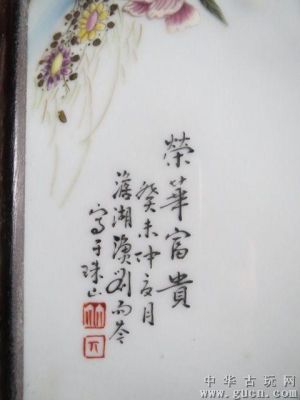 榮華富貴
癸未仲夏月
潯湖漁刘雨岑
寫于珠山
中华古玩网
www.gucn.com